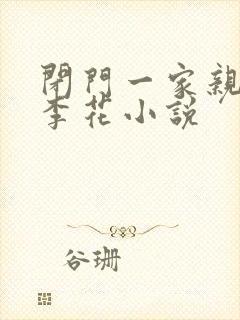 閉門一家親
李花小說
谷珊